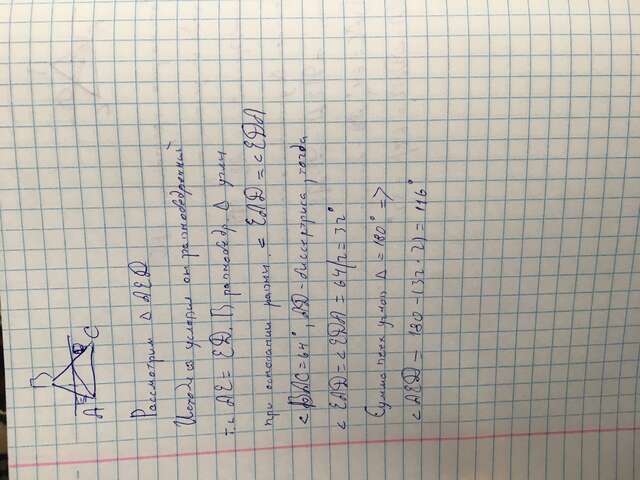 B
A E D C
Рассмотрим Δ AED
Исходя из условия он равнобедренный
т.к AE = ED. В равнобедр. Δ углы
при основании равны. < EAD = < EDA
< BAC = 64°, AD - биссектриса, тогда
< EAD = < EDA = 64/2 = 32°
Сумма всех углов Δ = 180° =>
< AED = 180 - (32·2) = 116°